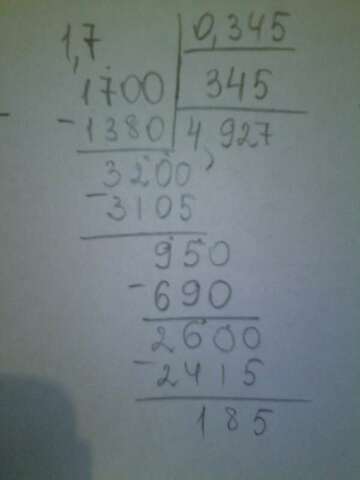 1,7 0,345
1700 345
-1380 4,927
3200
-3105
950
-690
2600
-2415
185